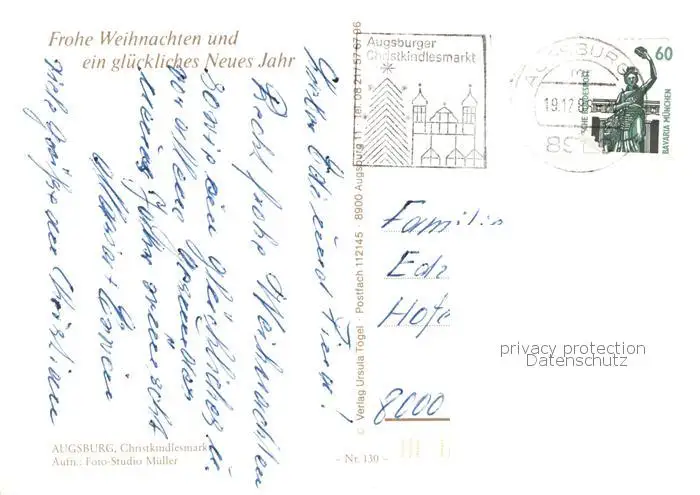 Frohe Weihnachten und
ein glückliches Neues Jahr
Recht frohe Weihnachten
sowie ein glückliches u.
vor allem gesundes
neues Jahr wünscht
Viele Grüße von Christian
AUGSBURG, Christkindlesmarkt
Aufn.: Foto-Studio Müller
– Nr. 130 –
© Verlag Ursula Togel · Postfach 112145 · 8900 Augsburg 11 · Tel. 08 21/57 67 96
Augsburger
Christkindlesmarkt
AUGSBURG
19.12.
89
60
DEUTSCHE BUNDESPOST
BAVARIA MÜNCHEN
Familie
Hofe
8000
privacy protection
Datenschutz